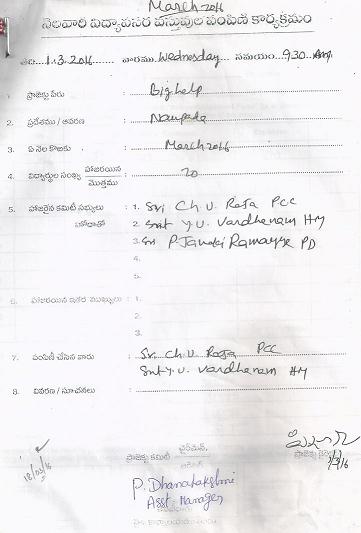 March 2016
నెలవారి విద్యావసర వస్తువుల పంపిణి కార్యక్రమం
తేది 1.3.2016 వారము Wednesday సమయం 9.30 Am
1. ప్రాజెక్టు పేరు : Bighelp
2. ప్రదేశము / ఆవరణ : Naupada
3. ఏ నెల కొఱకు : March 2016
4. విద్యార్థుల సంఖ్య హాజరయిన / మొత్తము : 20
5. హాజరైన కమిటీ సభ్యులు : 1. Sri Ch. U. Raja PCC
హోదాతో 2. Smt Y. U. Vardhanam HM
3. Sri P. Janaki Ramayya PD
4.
5.
6. హాజరయిన ఇతర ముఖ్యులు : 1.
2.
3.
7. పంపిణీ చేసిన వారు : Sri. Ch. U. Raja PCC
Smt Y. U. Vardhanam HM
8. వివరణ / సూచనలు :
ప్రాజెక్టు కమిటీ ఛైర్మెన్,
P. Dhanalakshmi
Asst. Manager